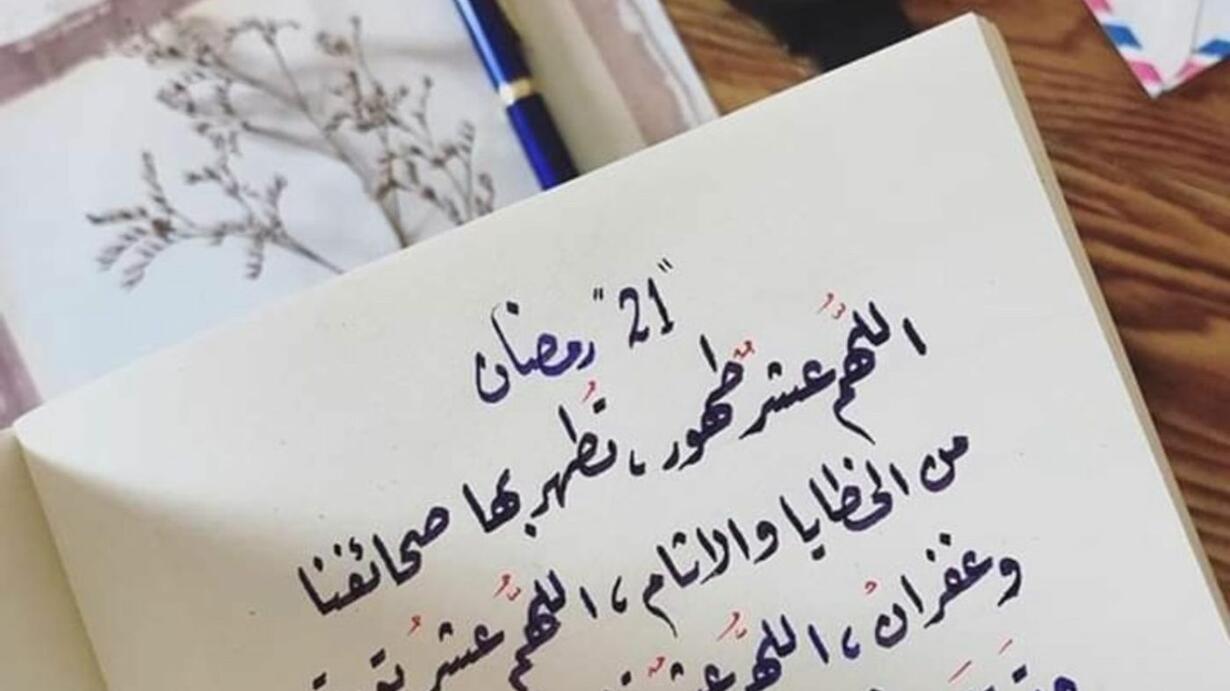 "21" رمضان
اللهُّم عشرٌ طهور، تُطهر بها صحائفنا
من الخطايا والاثام، اللهُّم عشرُ
وغفرانُ، اللهُّم عشرٌ